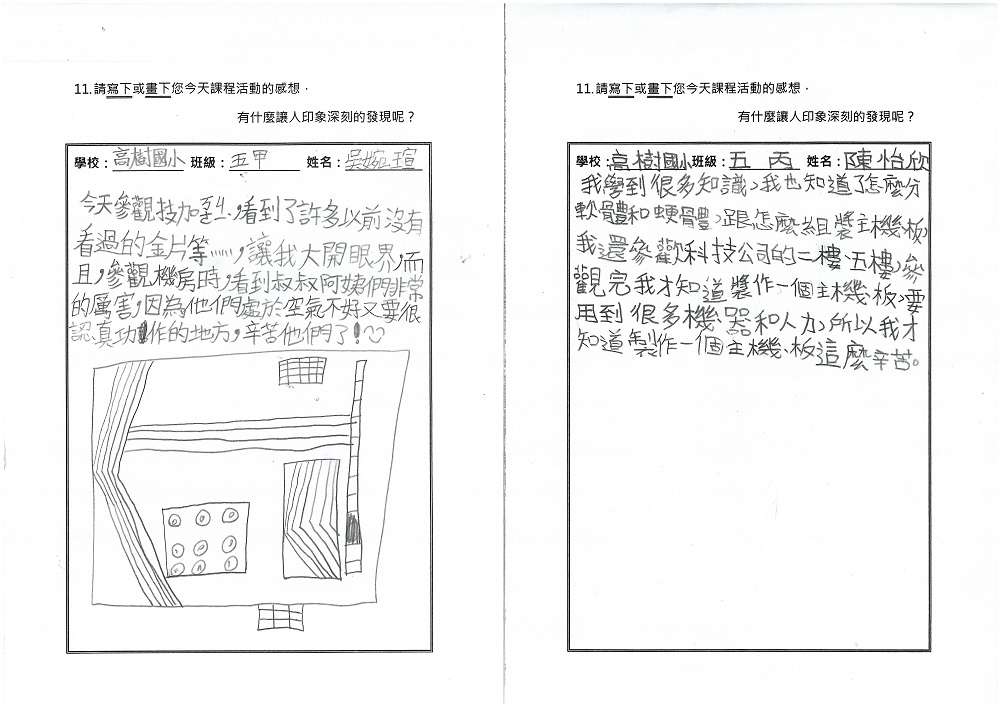 11.請寫下或畫下您今天課程活動的感想，
有什麼讓人印象深刻的發現呢？
學校：高樹國小 班級：五甲 姓名：吳婉瑄
今天參觀技加，看到了許多以前沒有
看過的金片等……，讓我大開眼界，而
且，參觀機房時，看到叔叔阿姨們非常
的厲害，因為他們處於空氣不好又要很
認真功作的地方，辛苦他們了！
11.請寫下或畫下您今天課程活動的感想，
有什麼讓人印象深刻的發現呢？
學校：高樹國小班級：五丙 姓名：陳怡欣
我學到很多知識，我也知道了怎麼分
軟體和硬體，跟怎麼組裝主機板，
我還參歡科技公司的二樓、五樓，參
觀完我才知道製作一個主機板，要
用到很多機器和人力，所以我才
知道製作一個主機板這麼辛苦。